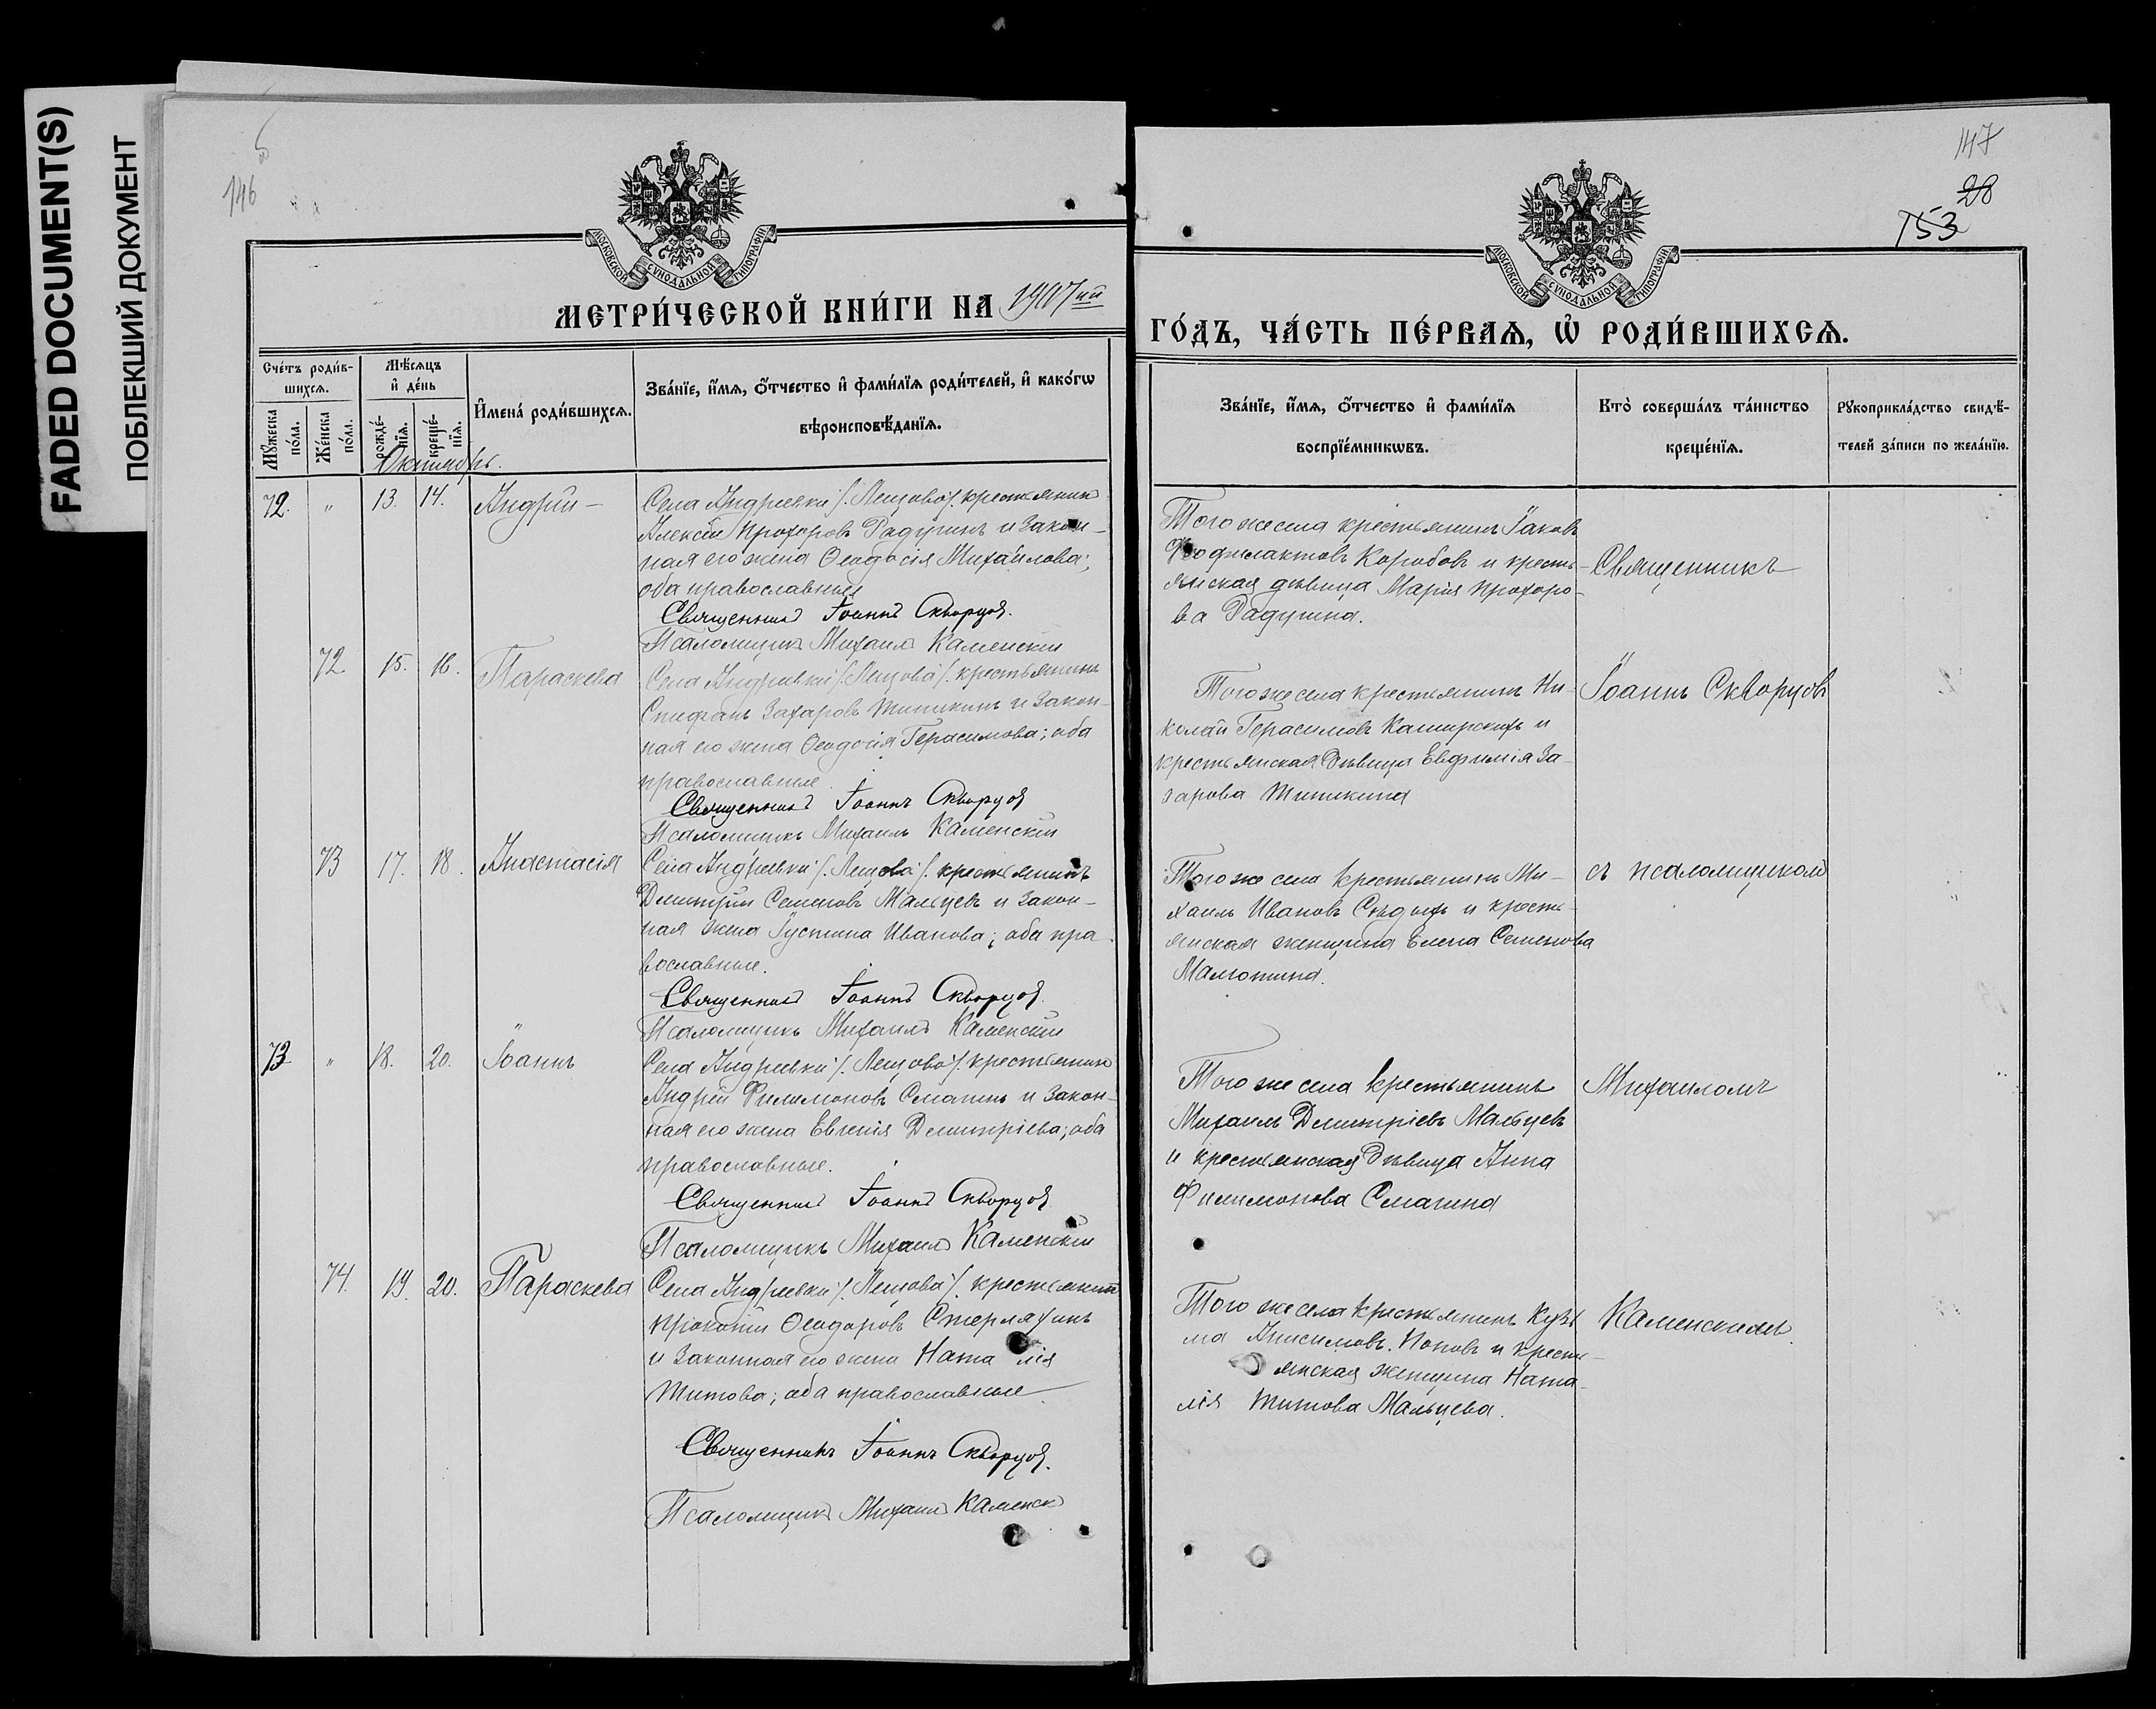 FADED DOCUMENT(S)
ПОБЛЕКШИЙ ДОКУМЕНТ
146
МОСКОВСКОЙ СѴНОДАЛЬНОЙ ТИПОГРАФІИ
МЕТРИ́ЧЕСКОЙ КНИ́ГИ НА 1907ый
Сче́тъ роди́в-
шихсѧ.
Мꙋ́жеска по́ла.
Же́нска по́ла.
Мѣ́сѧцъ
и҆ де́нь
рожде́-
нїѧ.
креще́-
нїѧ.
И҆мена̀ роди́вшихсѧ.
Зва́нїе, и҆́мѧ, ѻ҆́тчество и҆ фами́лїѧ роди́телей, и҆ како́гѡ
вѣроисповѣ́данїѧ.
Октябрь.
72. " 13. 14. Андрей – Села Андреевки /.Лещово/. крестьянин
Алексѣй Прохоровъ Радугинъ и закон-
ная его жена Ѳеодосія Михайлова;
оба православные
Священникъ Іоаннъ Скворцовъ.
Псаломщикъ Михаилъ Каменскій
72 15. 16. Параскева Села Андреевки /.Лещова/. крестьянинъ
Стефанъ Захаровъ Типикинъ и закон-
ная его жена Ѳеодосія Герасимова; оба
православные.
Священникъ Іоаннъ Скворцовъ
Псаломщикъ Михаилъ Каменскій
73 17. 18. Анастасія Села Андреевки /.Лещова/. крестьянинъ
Димитрій Семеновъ Мальцевъ и закон-
ная жена Іустина Иванова; оба пра-
вославные.
Священникъ Іоаннъ Скворцовъ.
Псаломщикъ Михаилъ Каменскій
73. " 18. 20. Іоаннъ Села Андреевки /.Лещово/. крестьянин
Андрей Филимоновъ Смагинъ и закон-
ная его жена Евгенія Димитріева; оба
православные.
Священникъ Іоаннъ Скворцовъ.
Псаломщикъ Михаилъ Каменскій
74. 19. 20. Параскева Села Андреевки /.Лещова/. крестьянин
Прокопій Ѳеодоровъ Стерляхинъ
и законная его жена Ната лія
Титова; оба православные
Священникъ Іоаннъ Скворцовъ.
Псаломщикъ Михаилъ Каменск
147
28
153
МОСКОВСКОЙ СѴНОДАЛЬНОЙ ТИПОГРАФІИ
ГО́ДЪ, ЧА́СТЬ ПЕ́РВАѦ, Ѽ РОДИ́ВШИХСѦ.
Зва́нїе, и҆́мѧ, ѻ҆́тчество и҆ фами́лїѧ
воспрїе́мникѡвъ.
Кто̀ соверша́лъ та́инство
креще́нїѧ.
Рꙋкоприкла́дство свидѣ́-
телей за́писи по жела́нїю.
Того же села крестьянинъ Іаковъ
Феофилактовъ Коробовъ и кресть-
янская дѣвица Марія Прохоро-
ва Радугина.
Священникъ
Того же села крестьянинъ Ни-
колай Герасимовъ Каширскихъ и
крестьянская дѣвица Евфимія За-
харова Типикина
Іоаннъ Скворцовъ
Того же села крестьянинъ Ми-
хаилъ Ивановъ Сѣдыхъ и кресть-
янская женщина Елена Семенова
Малютина.
съ псаломщикомъ
Того же села крестьянинъ
Михаилъ Димитріевъ Мальцевъ
и крестьянская дѣвица Анна
Филимонова Смагина
Михаиломъ
Того же села крестьянинъ Кузь
ма Анисимовъ Поповъ и кресть-
янская женщина Ната-
лія Титова Мальцева.
Каменскимъ.